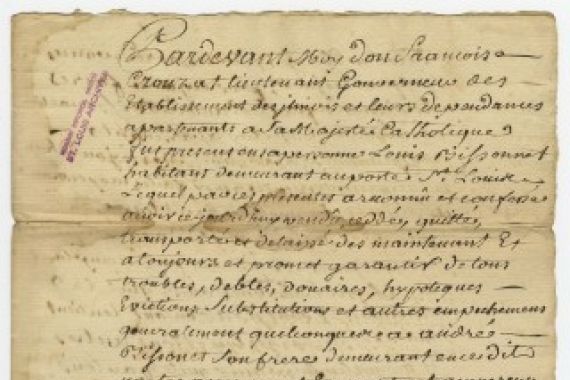 Pardevant Moy don françois
Crouzat lieutenant Gouverneur des
Etablissement des jlinois et leurs dependances
apartenants a Sa Majesté Catholique
fut present en sa personne Louis Bissonnet
habitans demeurant au poste St. Louis
Lequel par ces presentes a reconnu et confessé
avoir ce jourd'huy vendu, ceddé, quitté,
transporté et delaissé des maintenant Et
a toujours et promet garantir de tous
troubles, debtes, douaires, hypoteques
Evictions Substitutions et autres empechemens
generalement quelconques a andré
Bissonet son frere demeurant en ce dit
ST. LOUIS ARCHIVES